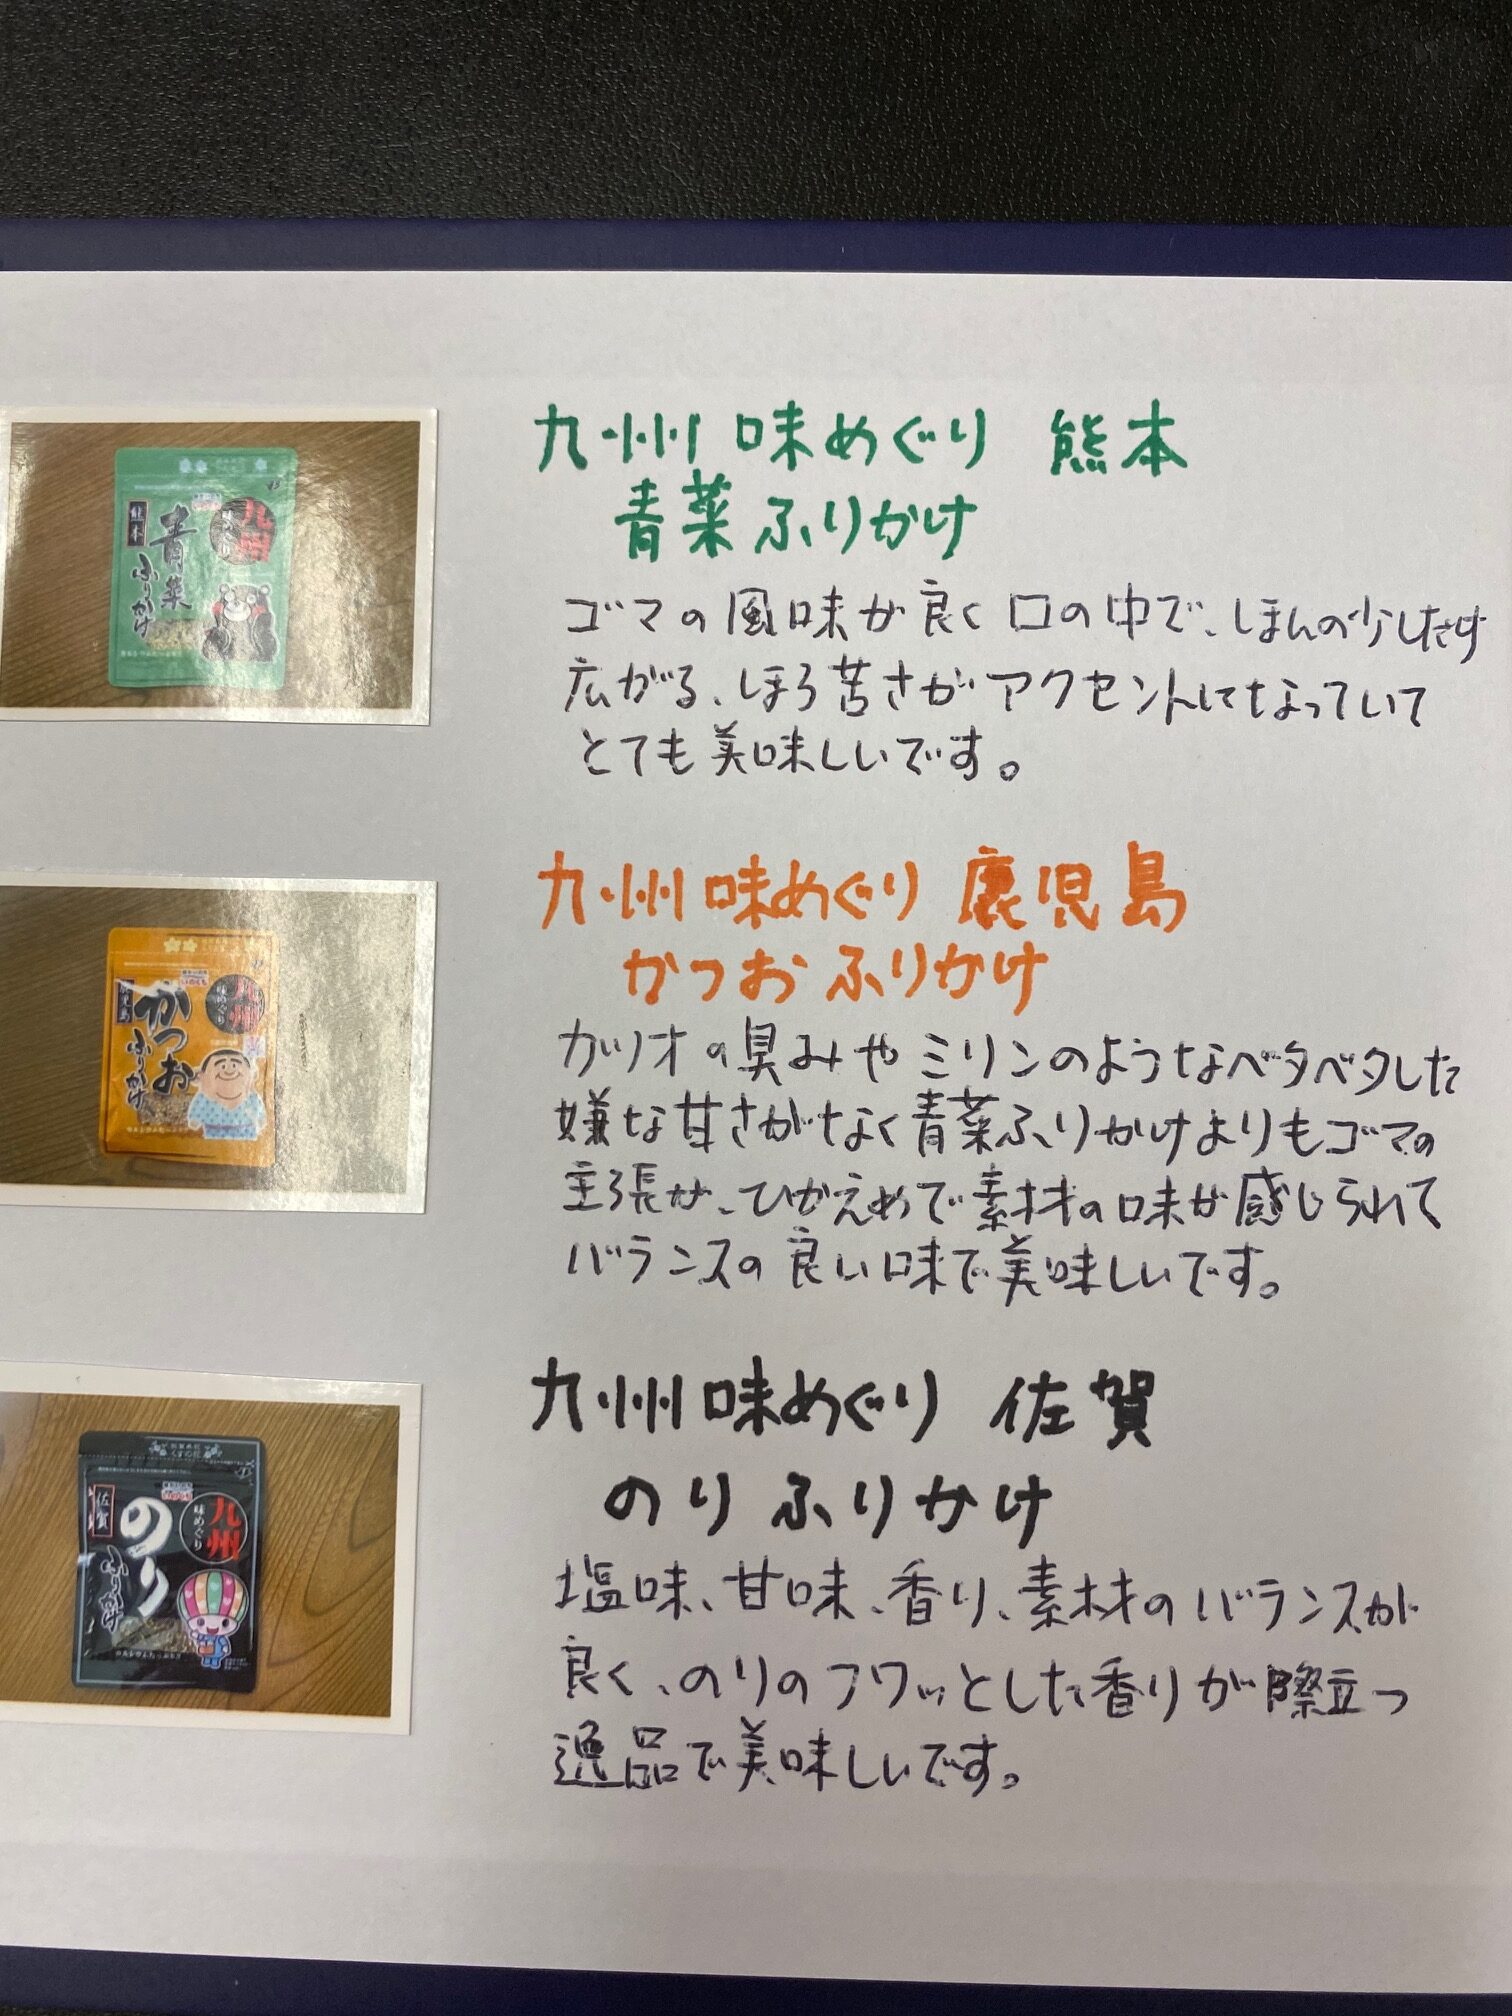 九州 味めぐり 熊本
青菜 ふりかけ
ゴマの風味が良く口の中で、ほんの少しだけ
広がる、ほろ苦さがアクセントになっていて
とても美味しいです。
九州 味めぐり 鹿児島
かつお ふりかけ
カツオの臭みやミリンのようなベタベタした
嫌な甘さがなく青菜ふりかけよりもゴマの
主張が、ひかえめで素材の味が感じられて
バランスの良い味で美味しいです。
九州 味めぐり 佐賀
のり ふりかけ
塩味、甘味、香り、素材のバランスが
良く、のりのフワッとした香りが際立つ
逸品で美味しいです。
九州
味めぐり
熊本
青菜
ふりかけ
九州
味めぐり
鹿児島
かつお
ふりかけ
九州
味めぐり
佐賀
のり
ふりかけ